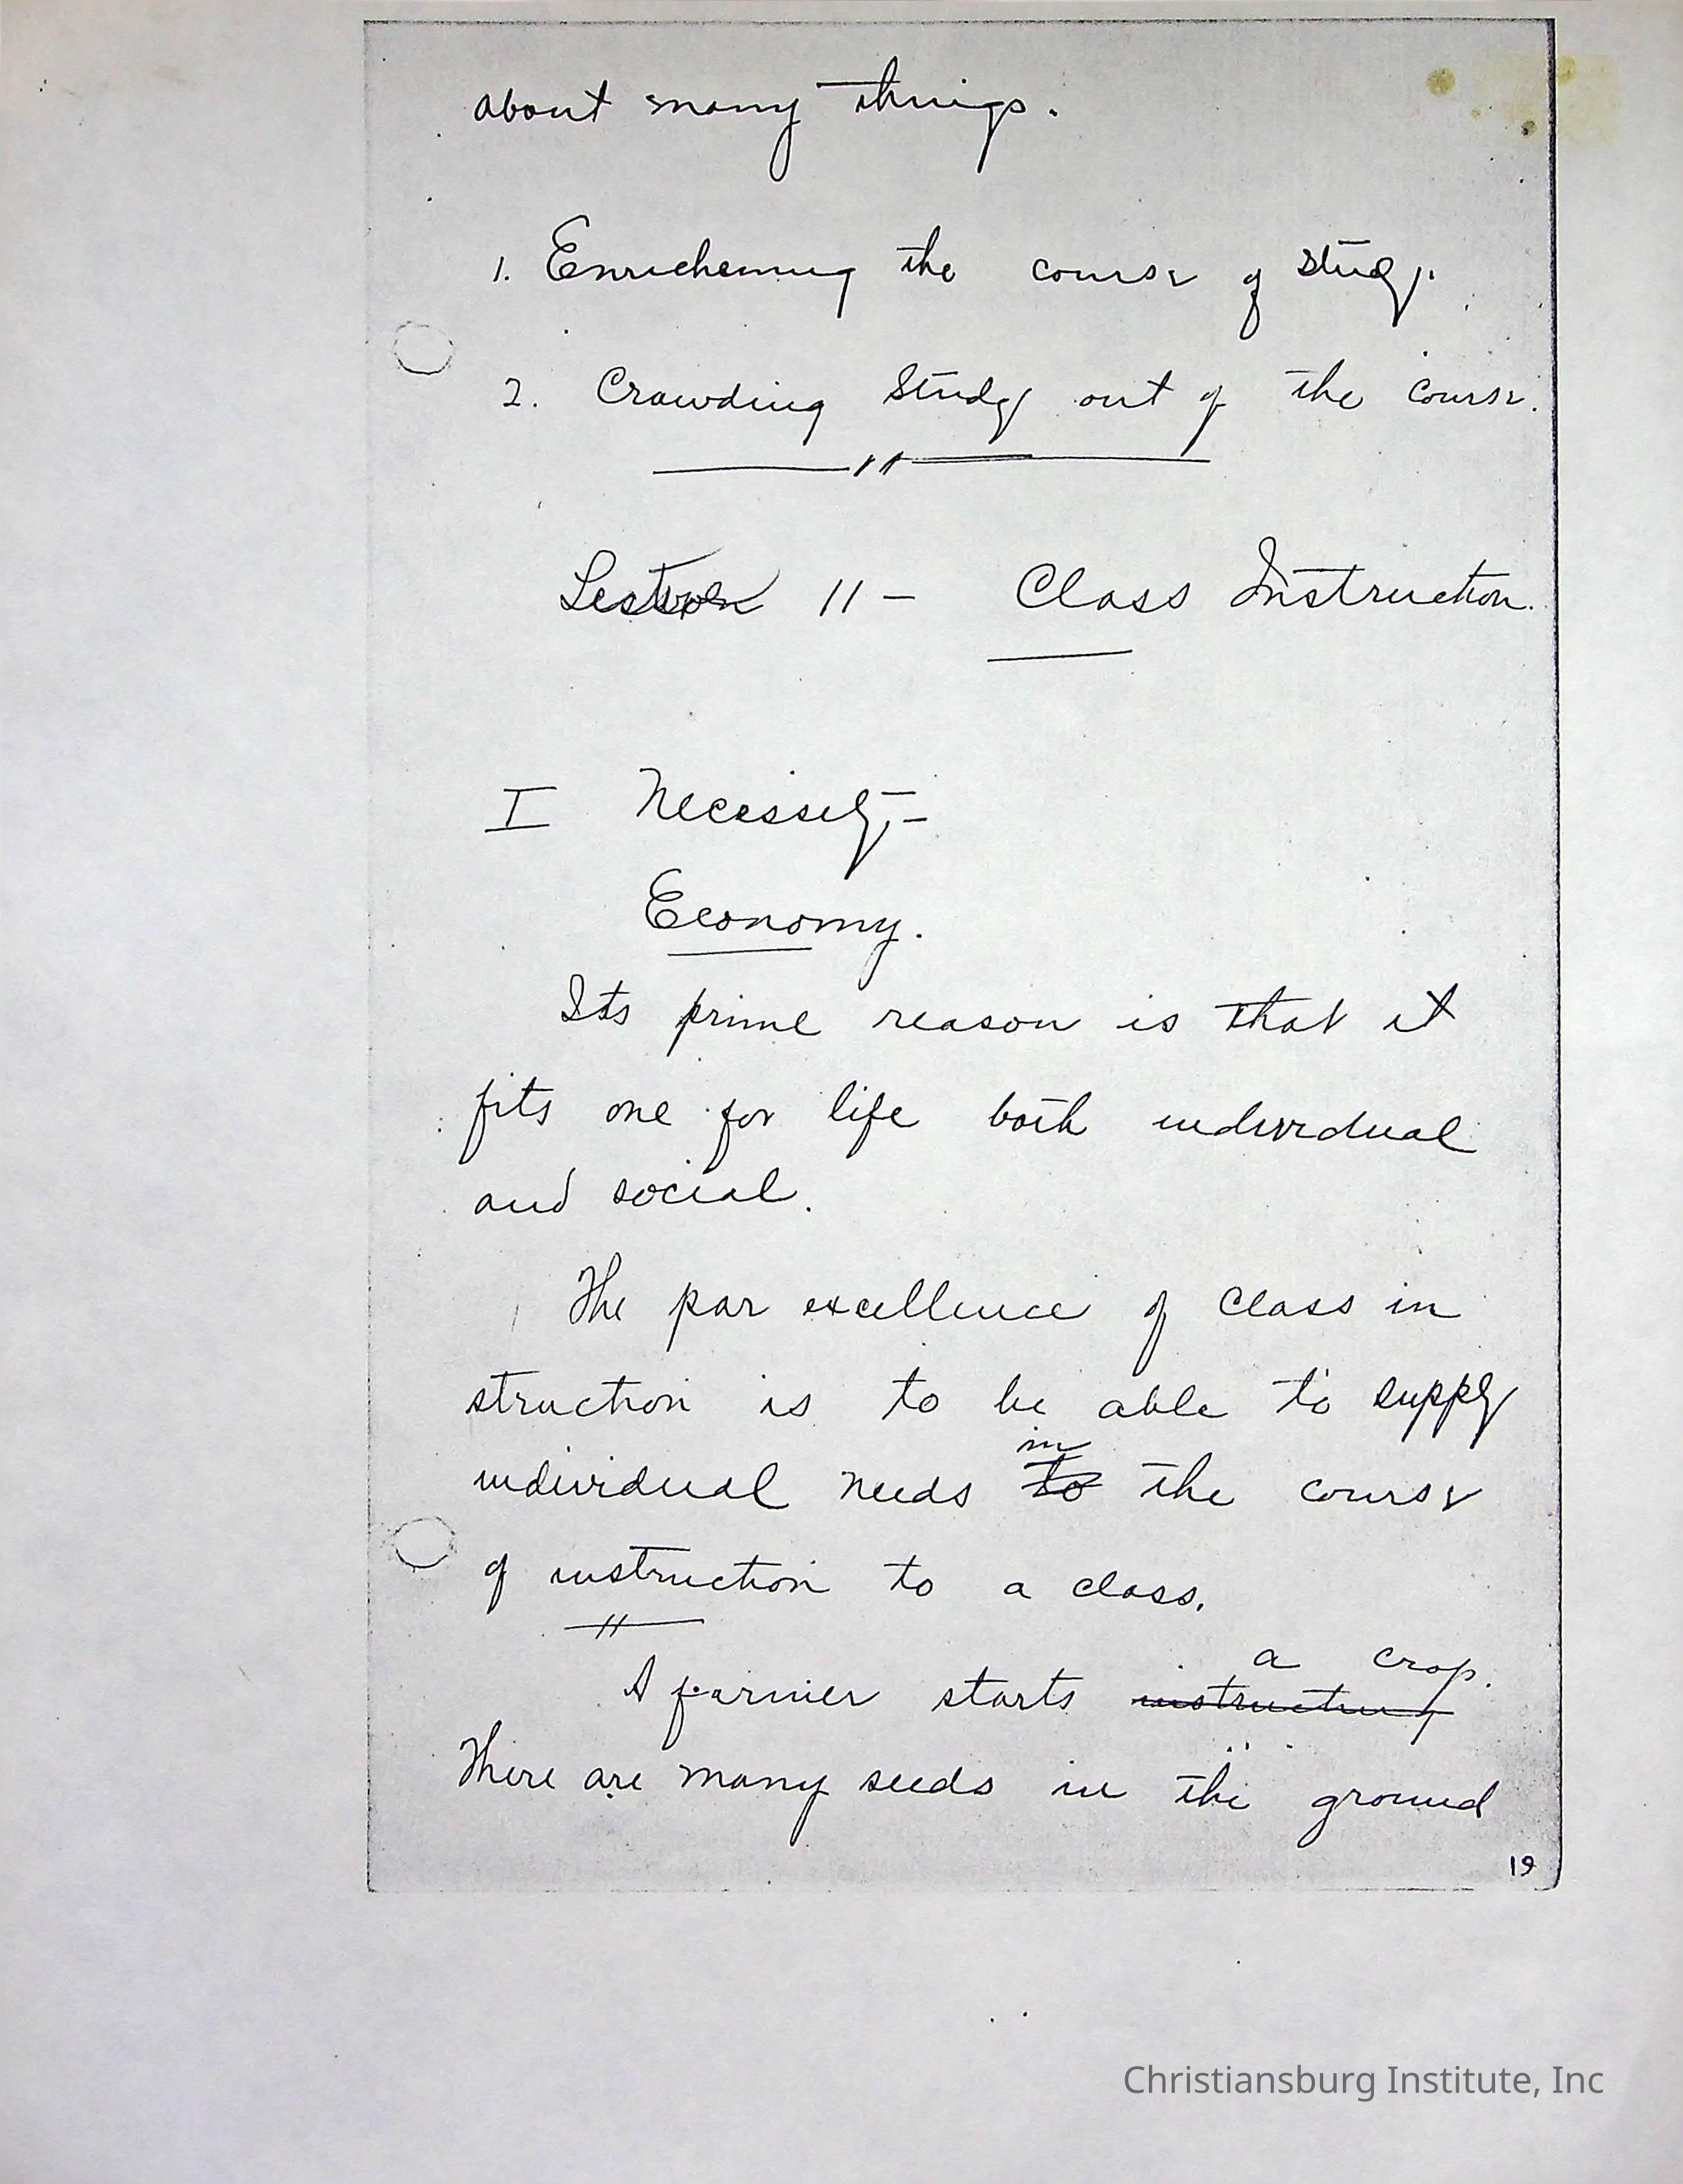 about many things.
1. Enrichening the course of study.
2. Crowding Study out of the course.
Lesson 11 - Class Instruction.
I Necessity,-
Economy.
Its prime reason is that it
fits one for life both individual
and social.
The par excellence of class in
struction is to be able to supply
in
individual needs to the course
of instruction to a class.
a crop.
A farmer starts instructing
There are many seeds in the ground
19
Christiansburg Institute, Inc